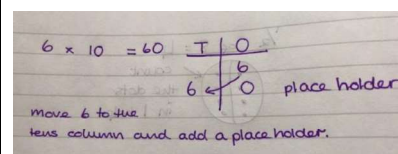 6 × 10 = 60 T | O
6
6 ← 0 place holder
move 6 to the
tens column and add a place holder.